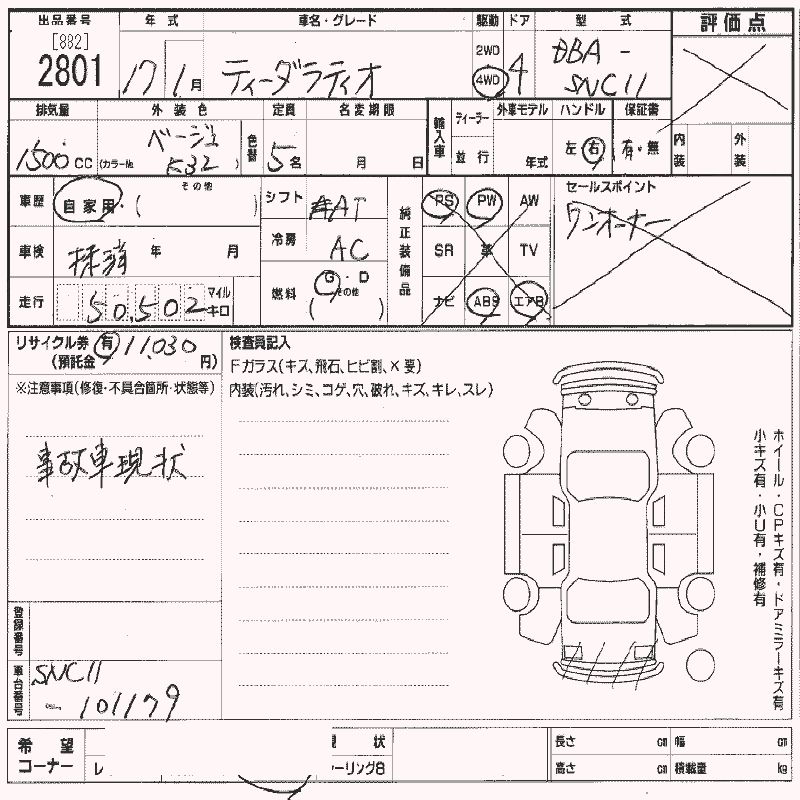 出品番号 年式 車名・グレード 駆動 ドア 型式 評価点
[882]
2801
17 1月
ティーダラティオ
2WD
4WD
4
DBA-
SNC11
排気量 外装色 定員 名変期限
1500cc
ベージュ
(カラー№ K32)
色替
5名
月 日
輸入車
ディーラー
並行
外車モデル ハンドル 保証書
年式
左・右
有・無
内装
外装
車歴
自家用・( )
その他
シフト
AT
純正装備品
PS PW AW
セールスポイント
ワンオーナー
車検
抹消 年 月
冷房
AC
SR 革 TV
走行
50,502
マイル
キロ
燃料
G・D
その他
( )
ナビ ABS エアB
リサイクル券 有 11,030
(預託金 円)
※注意事項(修復・不具合箇所・状態等)
事故車現状
検査員記入
Fガラス(キズ、飛石、ヒビ割、X要)
内装(汚れ、シミ、コゲ、穴、破れ、キズ、キレ、スレ)
ホイール・CPキズ有・ドアミラーキズ有
小キズ有・小U有・補修有
登録番号
車台番号
SNC11
-101179
希望
コーナー
レ
現状
ーリング8
長さ cm 幅 cm
高さ cm 積載量 kg